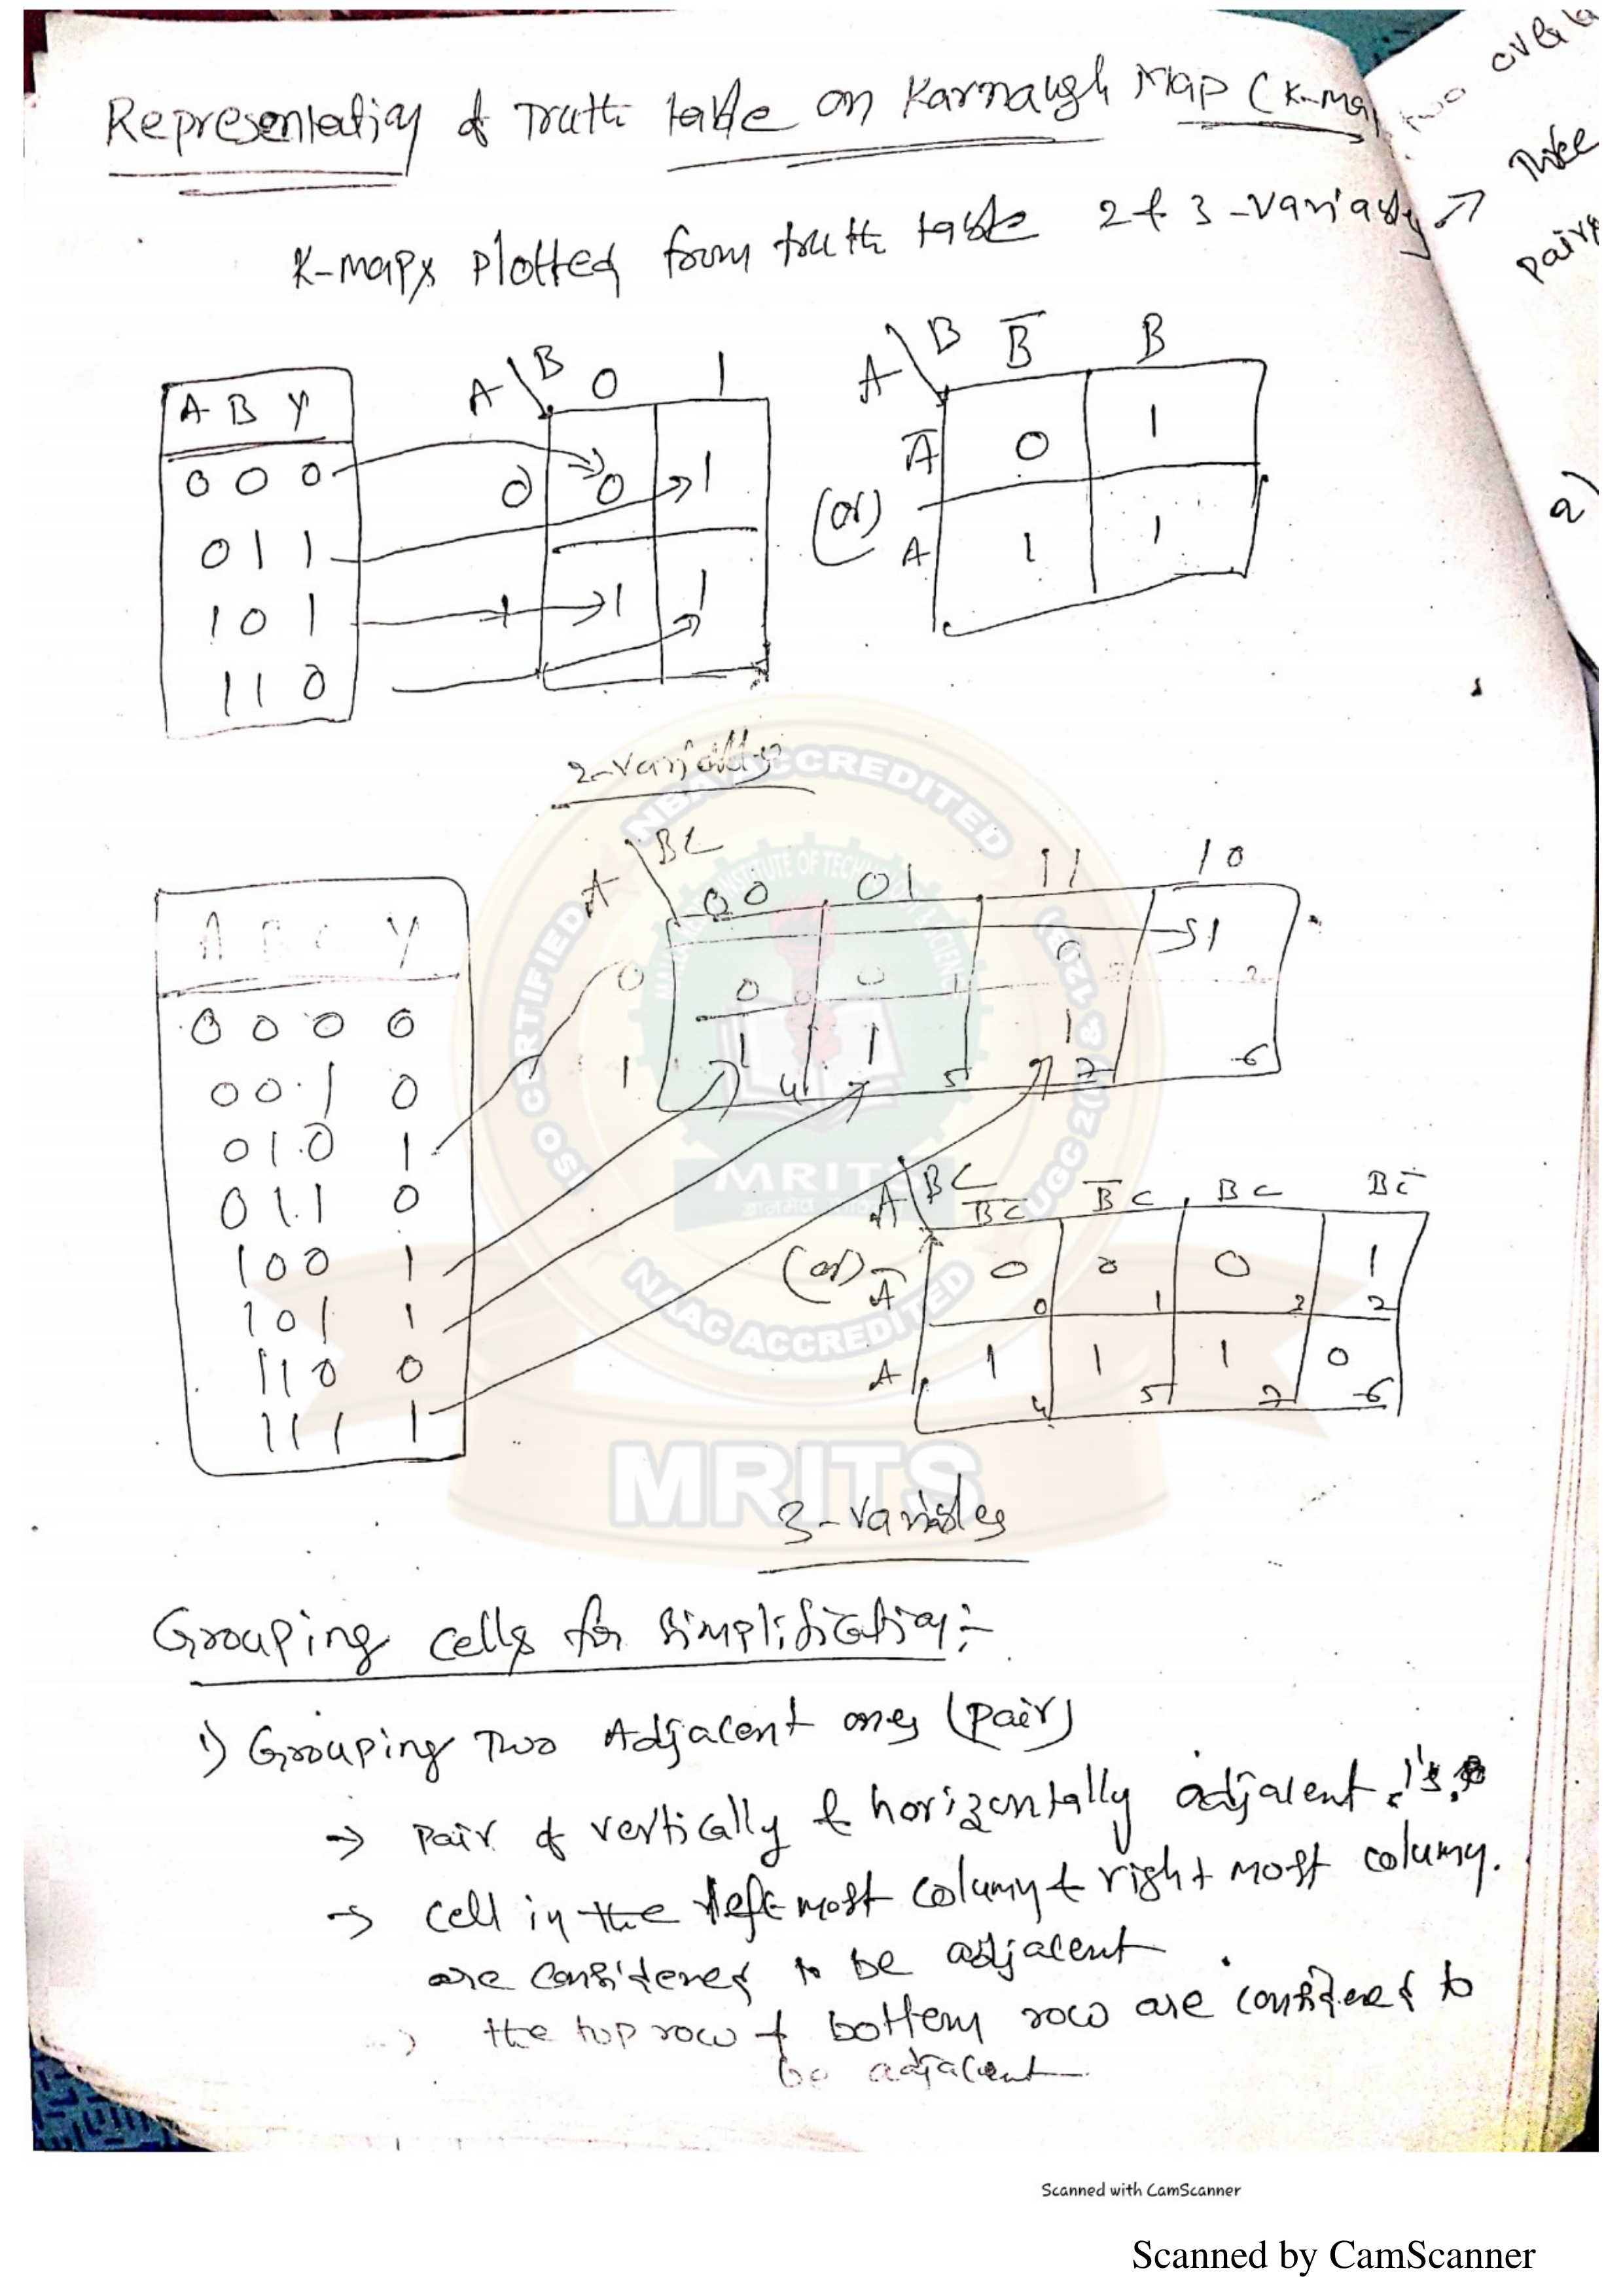 Representation of Truth table on Karnaugh Map (K-Ma
K-maps plotted from truth table 2 & 3 - variables →
over
two
Three
pairs
a)
A B Y
0 0 0
0 1 1
1 0 1
1 1 0
A \ B 0 1
0 0 1
1 1 1
(or)
A \ B B̅ B
A̅ 0 1
A 1 1
2-variables
A B C Y
0 0 0 0
0 0 1 0
0 1 0 1
0 1 1 0
1 0 0 1
1 0 1 1
1 1 0 0
1 1 1 1
A \ BC 00 01 11 10
0 0 0 0 1
0 1 3 2
1 1 1 1
4 5 7 6
(or)
A \ BC B̅C̅ B̅C BC BC̅
A̅ 0 0 0 1
0 1 3 2
A 1 1 1 0
4 5 7 6
3-variables
NBA ACCREDITED
CERTIFIED
NAAC ACCREDITED
MRITS
MRITS
Grouping cells for simplification:-
1) Grouping Two Adjacent ones (pair)
→ pair of vertically & horizontally adjacent 1's.
→ cell in the left most column & right most column.
are considered to be adjacent
→ the top row & bottom row are considered to
be adjacent
Scanned with CamScanner
Scanned by CamScanner